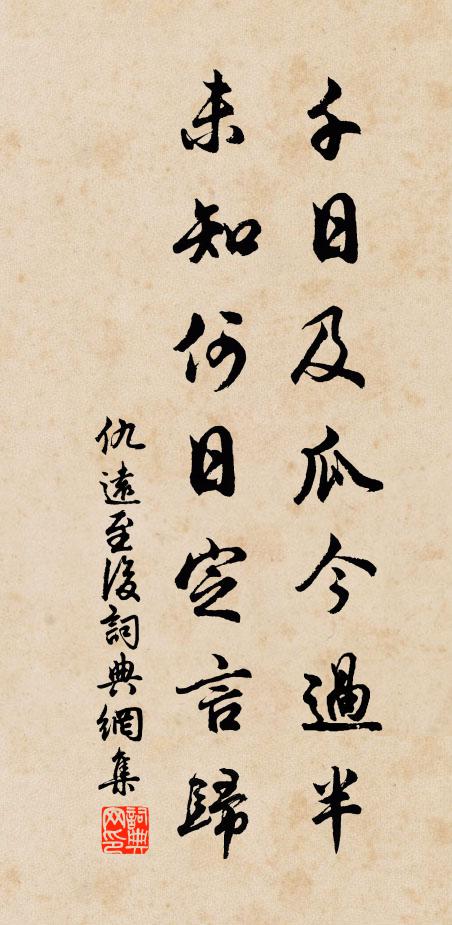 千日及瓜今過半
未知何日定言歸
仇遠至後詞典網集
詞典网印